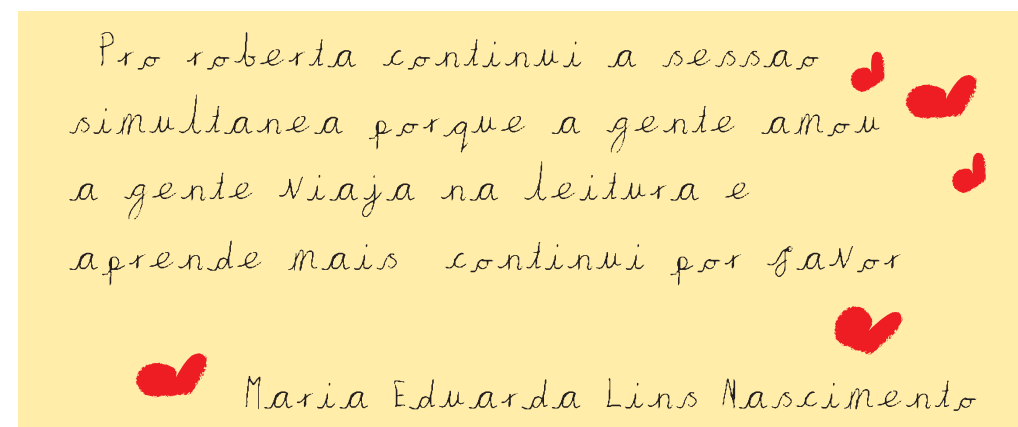 Pro roberta continui a sessao
simultanea porque a gente amou
a gente viaja na leitura e
aprende mais continui por favor
Maria Eduarda Lins Nascimento